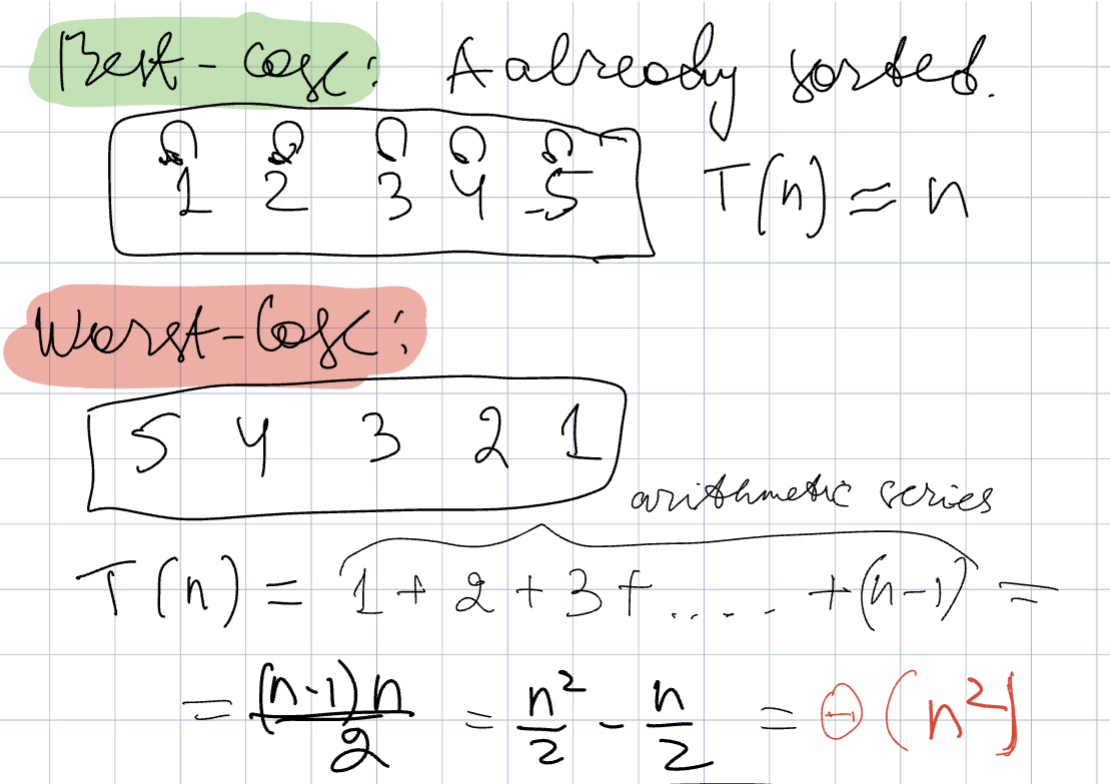 Best-Case: A already sorted.
1 2 3 4 5
T(n) = n
Worst-Case:
5 4 3 2 1
arithmetic series
T(n) = 1 + 2 + 3 + ..... + (n-1) =
= (n-1)n/2 = n²/2 - n/2 = Θ(n²)